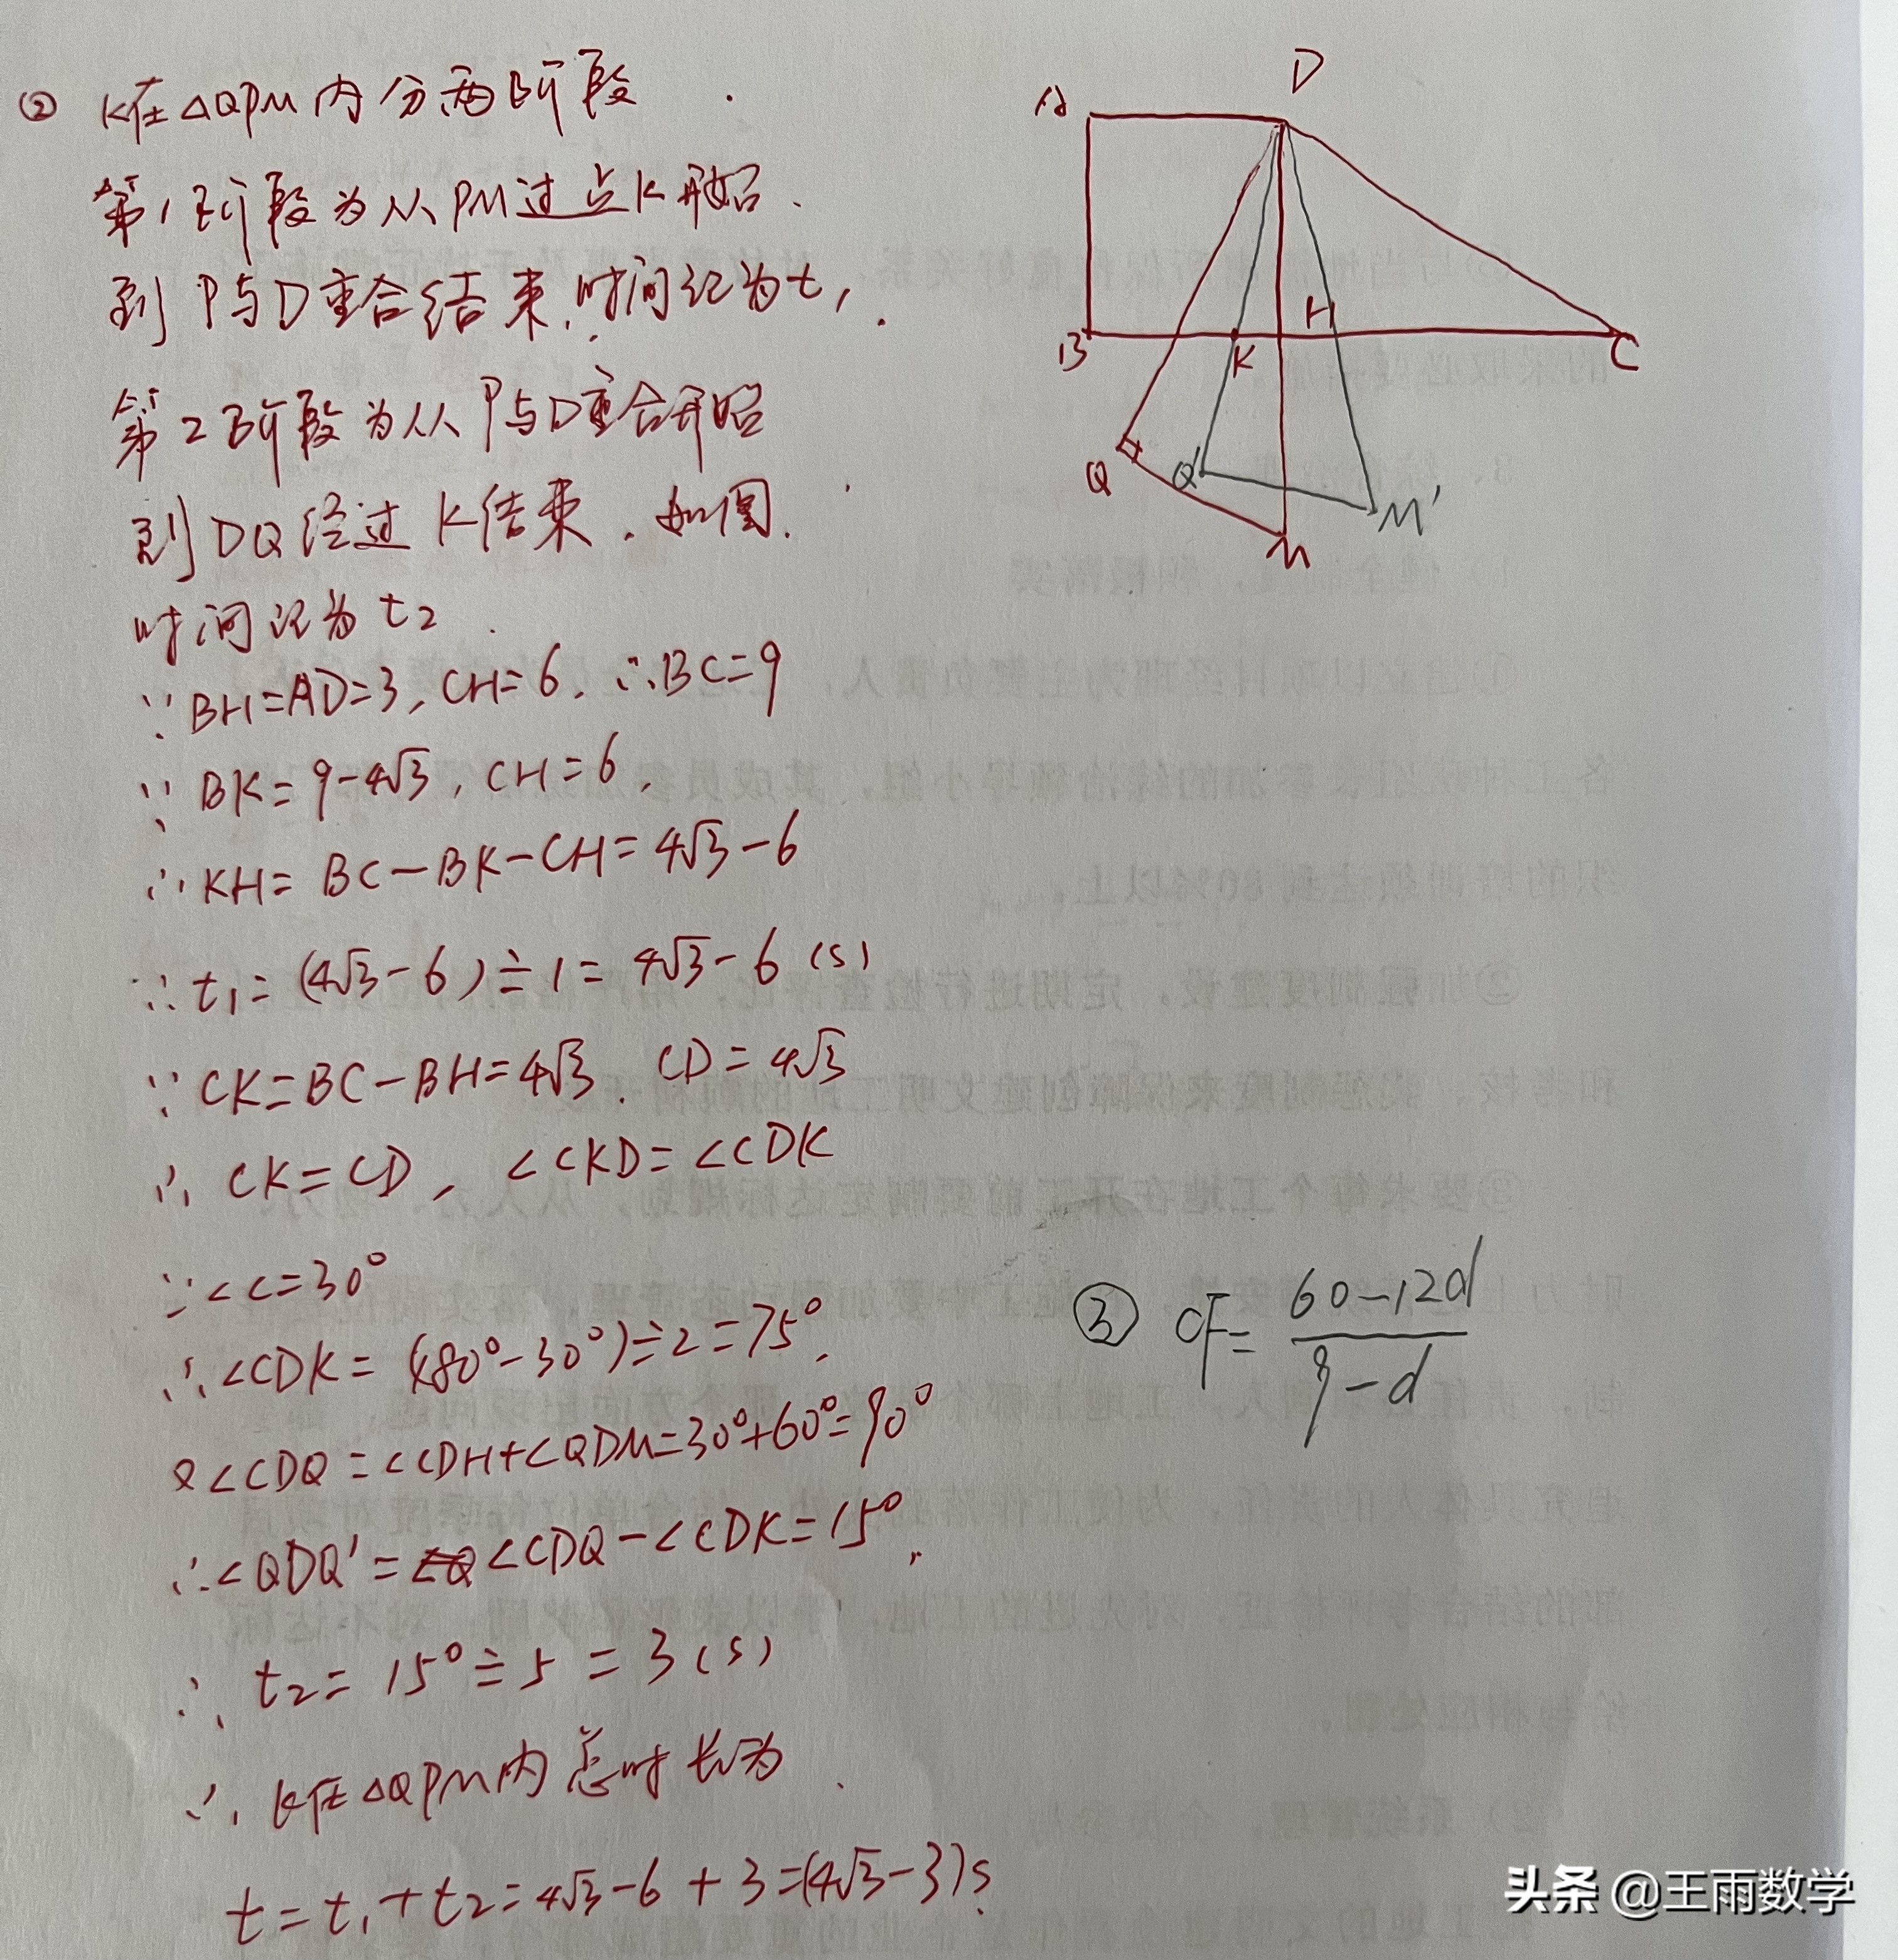 ② K在△QPM内分两阶段.
第1阶段为从PM过点K开始.
到P与D重合结束,时间记为t₁.
第2阶段为从P与D重合开始
到DQ经过K结束.如图.
时间记为t₂.
∵BH=AD=3, CH=6, ∴BC=9
∵BK=9-4√3, CH=6,
∴KH=BC-BK-CH=4√3-6
∴t₁=(4√3-6)÷1=4√3-6(s)
∵CK=BC-BH=4√3. CD=4√3
∴CK=CD, ∠CKD=∠CDK
∵∠C=30°
∴∠CDK=(180°-30°)÷2=75°,
又∠CDQ=∠CDH+∠QDM=30°+60°=90°
∴∠QDQ'=∠CDQ-∠CDK=15°,
∴t₂=15°÷5=3(s)
∴K在△QPM内总时长为.
t=t₁+t₂=4√3-6+3=(4√3-3)s.
A D
B K H C
Q Q' M'
M
③ CF=(60-12d)/(9-d)
头条 @王雨数学